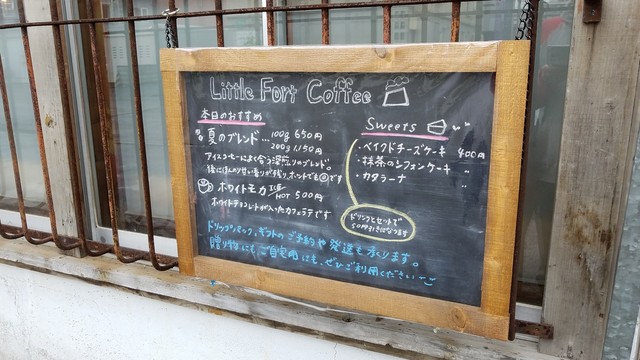 Little Fort Coffee
本日のおすすめ
夏のブレンド… 100g 650円
200g 1,150円
アイスコーヒーによく合う深煎りのブレンド。
後にほんのり甘い香りが残り、ホットでも◎です
ホワイトモカ ICE/HOT 500円
ホワイトチョコレートが入ったカフェラテです
Sweets
・ベイクドチーズケーキ 400円
・抹茶のシフォンケーキ 〃
・カタラーナ 〃
ドリンクとセットで
50円引きになります
ドリップバッグ、ギフトのご予約や発送も承ります。
贈り物にも、ご自宅用にも、ぜひご利用ください